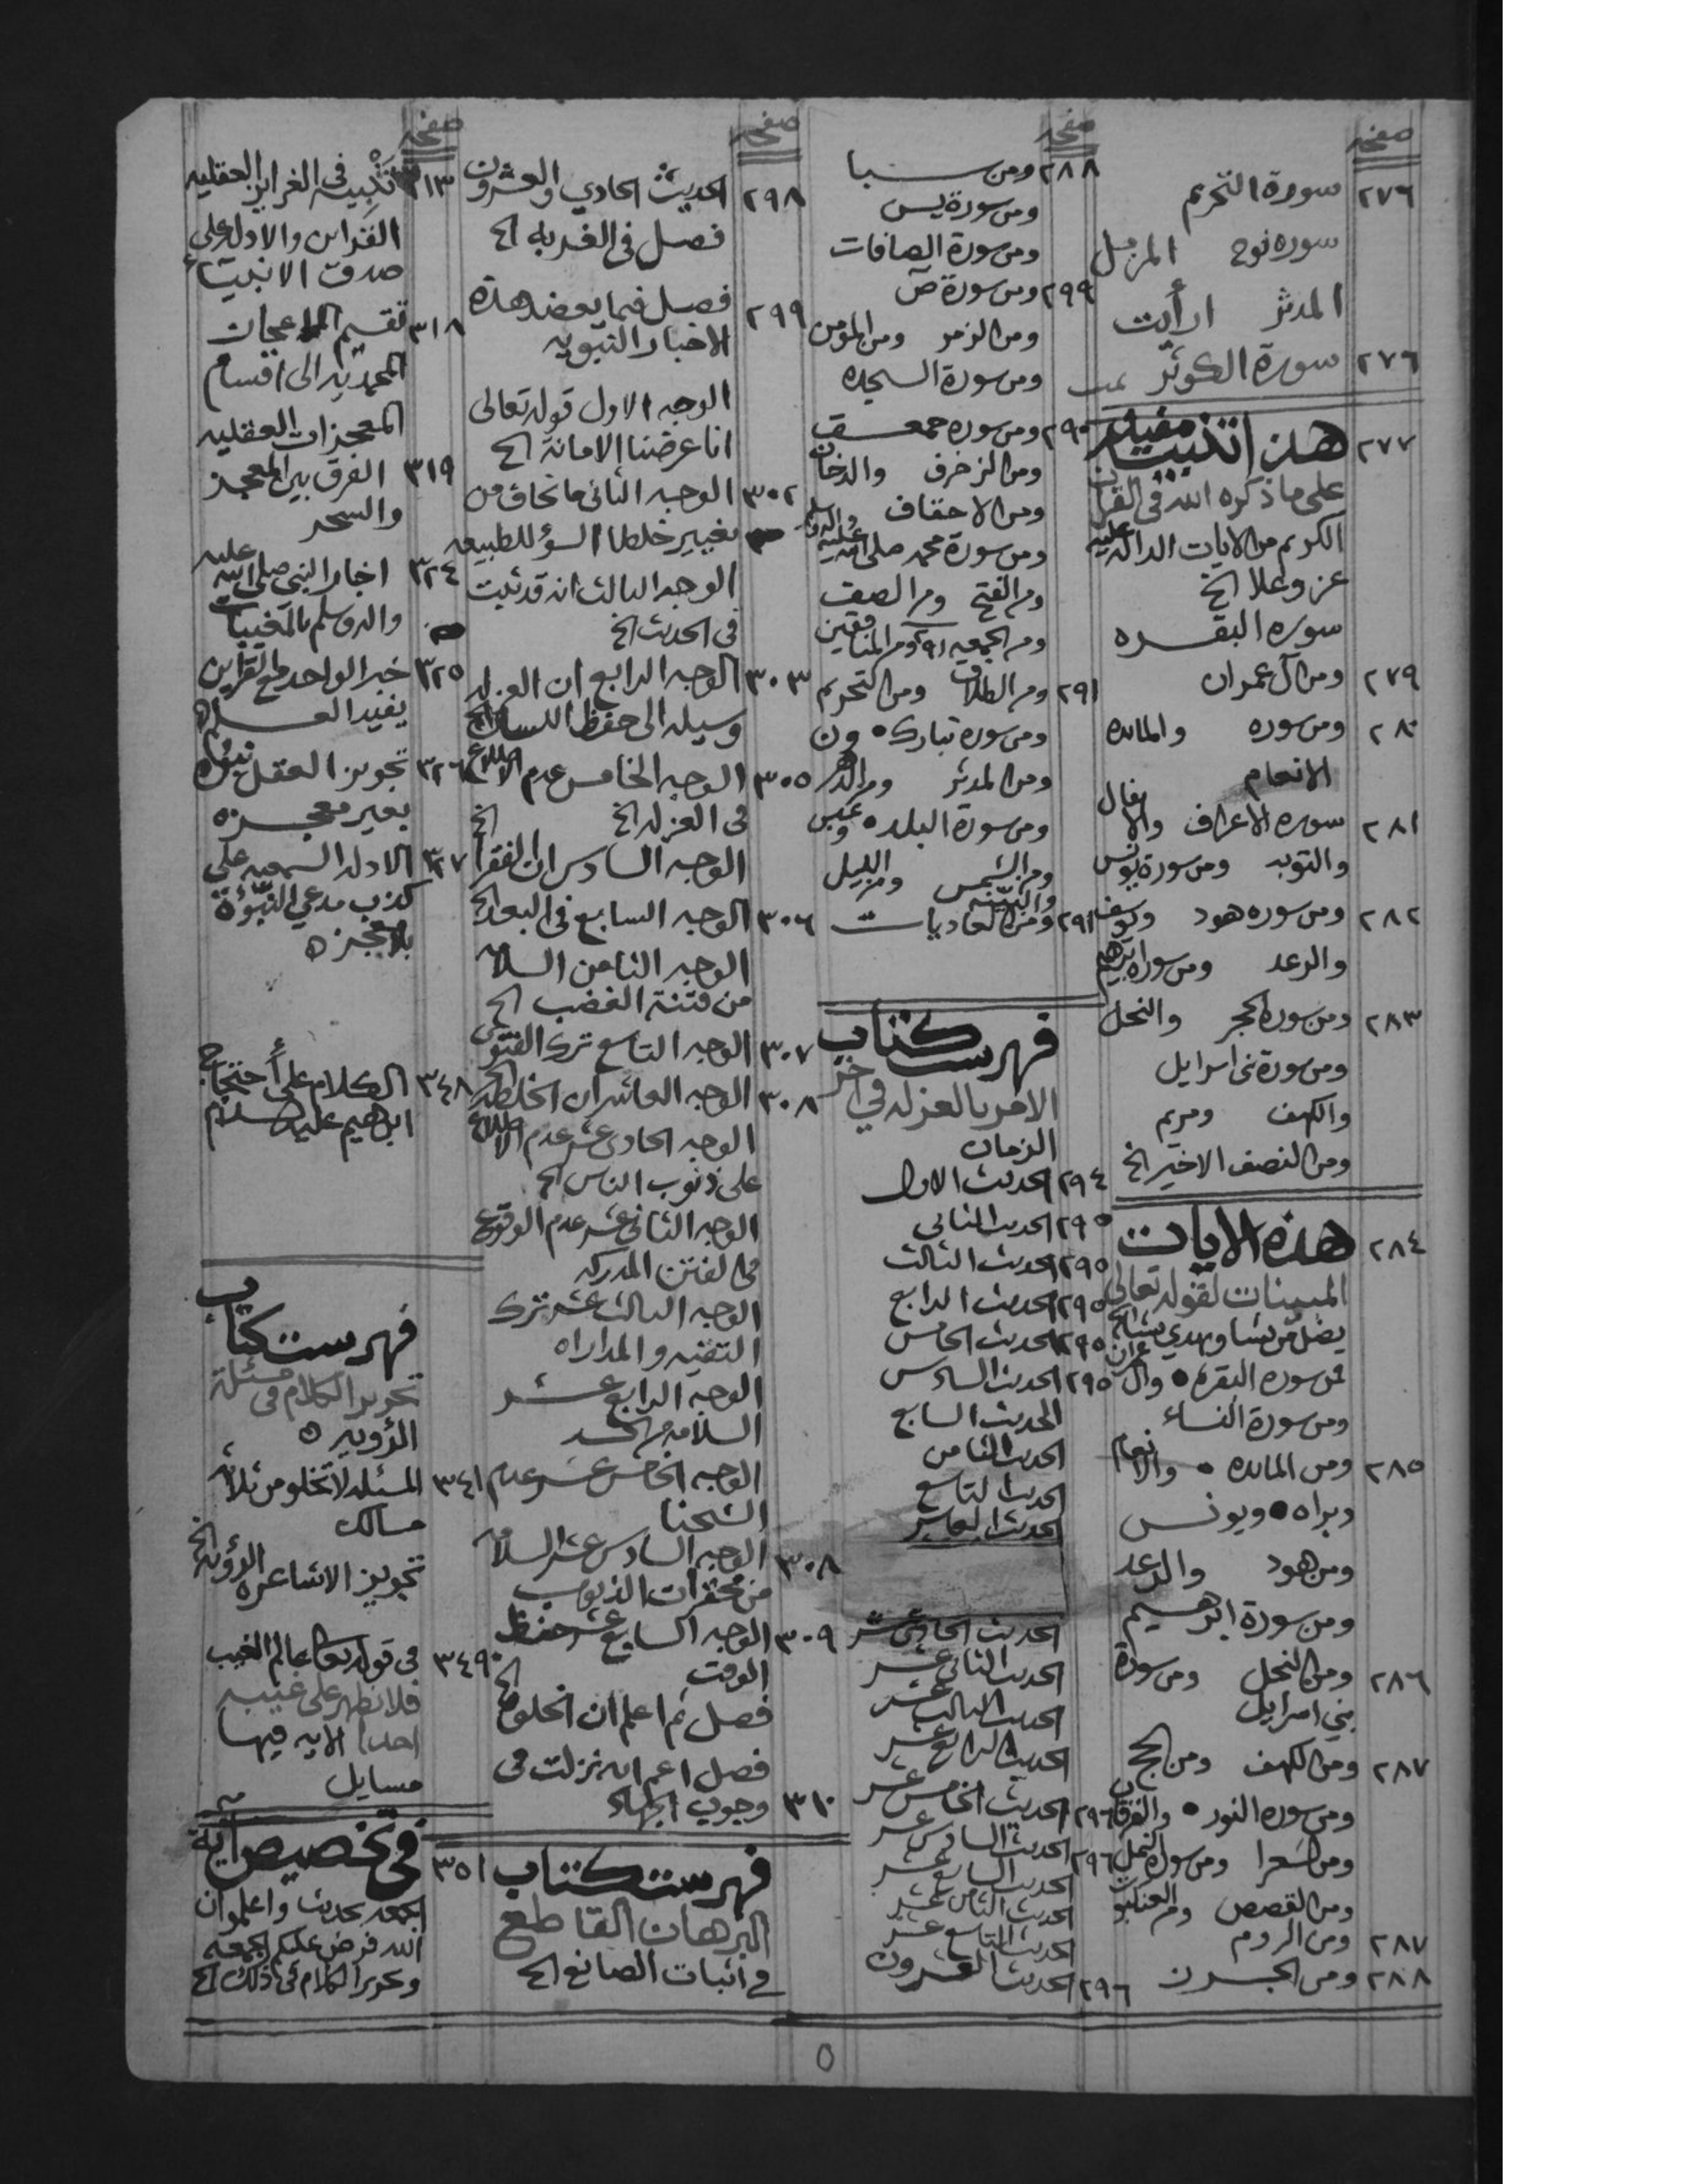 صفحه
٢٧٦ سورة التحريم
سوره نوح المزمل
المدثر ارأيت
٢٧٦ سورة الكوثر تمت
٢٧٧ هذا تنبيه مفيد
على ما ذكره الله فى القران
الكريم من الايات الداله عليه
عز وعلا الخ
سوره البقره
٢٧٩ ومن آل عمران
٢٨٠ ومن سوره والمائده
الانعام
٢٨١ سوره الاعراف والانفال
والتوبه ومن سورة يونس
٢٨٢ ومن سوره هود ويوسف
والرعد ومن سورة ابرهيم
٢٨٣ ومن سورة الحجر والنحل
ومن سورة بنى اسرايل
والكهف ومريم
ومن النصف الاخير الخ
٢٨٤ هذه الايات
المبينات لقوله تعالى
يضل من يشا ويهدي من يشا الخ
من سوره البقرة وال عمران
ومن سورة النساء
٢٨٥ ومن المائده والانعام
وبراه ويونس
ومن هود والرعد
ومن سورة ابرهيم
٢٨٦ ومن النحل ومن سورة
بني اسرايل
٢٨٧ ومن الكهف ومن الحج
ومن سوره النور والفرقان
ومن الشعرا ومن سورة النمل
ومن القصص ومن العنكبوت
٢٨٧ ومن الروم
٢٨٨ ومن الجرن
صفحه
٢٨٨ ومن سبا
ومن سورة يس
ومن سورة الصافات
٢٩٩ ومن سورة ص
ومن الزمر ومن المؤمن
ومن سورة السجده
٢٩٠ ومن سوره حمعسق
ومن الزخرف والدخان
ومن الاحقاف
ومن سورة محمد صلى الله عليه واله وسلم
ومن الفتح ومن الصف
ومن الجمعه ٢٩١ ومن المنافقين
٢٩١ ومن الطلاق ومن التحريم
ومن سورة تبارك ون
ومن المدثر ومن الدهر
ومن سورة البلد وعبس
ومن الشمس ومن الليل
والبينه
٢٩١ ومن العاديات
فهرست كتاب
الامر بالعزله في اخر
الزمان
٢٩٤ الحديث الاول
٢٩٥ الحديث الثانى
٢٩٥ الحديث الثالث
٢٩٥ الحديث الرابع
٢٩٥ الحديث الخامس
٢٩٥ الحديث السادس
الحديث السابع
الحديث الثامن
الحديث التاسع
الحديث العاشر
الحديث الحادى عشر
الحديث الثانى عشر
الحديث الثالث عشر
الحديث الرابع عشر
٢٩٦ الحديث الخامس عشر
٢٩٦ الحديث السادس عشر
الحديث السابع عشر
الحديث الثامن عشر
الحديث التاسع عشر
٢٩٦ الحديث العشرون
صفحه
٢٩٨ الحديث الحادي والعشرون
فصل فى الغربه الخ
٢٩٩ فصل فيما يعضد هذه
الاخبار النبويه
الوجه الاول قوله تعالى
انا عرضنا الامانة الخ
٣٠٢ الوجه الثانى ما نخاف من
تغيير خلطا السؤ للطبيعه
الوجه الثالث انه قد ثبت
فى الحديث الخ
٣٠٣ الوجه الرابع ان العزله
وسيله الى حفظ اللسان الخ
٣٠٥ الوجه الخامس عدم الاطلاع
فى العزله الخ
الوجه السادس ان الفقرا الخ
٣٠٦ الوجه السابع فى البعد الخ
الوجه الثامن السلامه
من فتنة الغضب الخ
٣٠٧ الوجه التاسع ترك الفتوى
٣٠٨ الوجه العاشر ان الخلطه الخ
الوجه الحادى عشر عدم الاطلاع
على ذنوب الناس الخ
الوجه الثانى عشر عدم الوقوع
فى الفتن المدركه
الوجه الثالث عشر ترك
التقيه والمداراه
الوجه الرابع عشر
السلامه من الحسد
الوجه الخامس عشر عدم
الشحنا
٣٠٨ الوجه السادس عشر السلامه
من محقرات الذنوب
٣٠٩ الوجه السابع عشر حفظ
الوقت
فصل ثم اعلم ان الخلوه الخ
فصل اعم ايه نزلت فى
٣١٠ وجوب الجهاد
فهرست كتاب
البرهان القاطع
في اثبات الصانع الخ
صفحه
٣١٣ تنبيه فى الغراين العقليه
القراين والادله على
صدق الانبياء
٣١٨ تقسيم المعجات
المحمديه الى اقسام
المعجزات العقليه
٣١٩ الفرق بين المعجز
والسحر
٣٢٤ اخبار النبى صلى الله عليه
واله وسلم بالمغيبات
٣٢٥ خبر الواحد مع القراين
يفيد العلم
٣٢٦ تجويز العقل نبوه
بغير معجزه
٣٢٧ الادله السمعيه على
كذب مدعي النبؤة
بلا معجزه
٣٤٨ الكلام على أحتجاج
ابرهيم عليه السلام
فهرست كتاب
تحرير الكلام فى مسئلة
الرؤويه
٣٤١ المسئله لا تخلو من ثلاثه
مسالك
تجويز الاشاعره الرؤويه الخ
٣٤٩ فى قوله تعالى عالم الغيب
فلا يظهر على غيبه
احدا الايه فيها
مسايل
٣٥١ في تخصيص آية
الجمعه بحديث واعلموا ان
الله فرض عليكم الجمعه
وتحرير الكلام فى ذلك الخ
٥